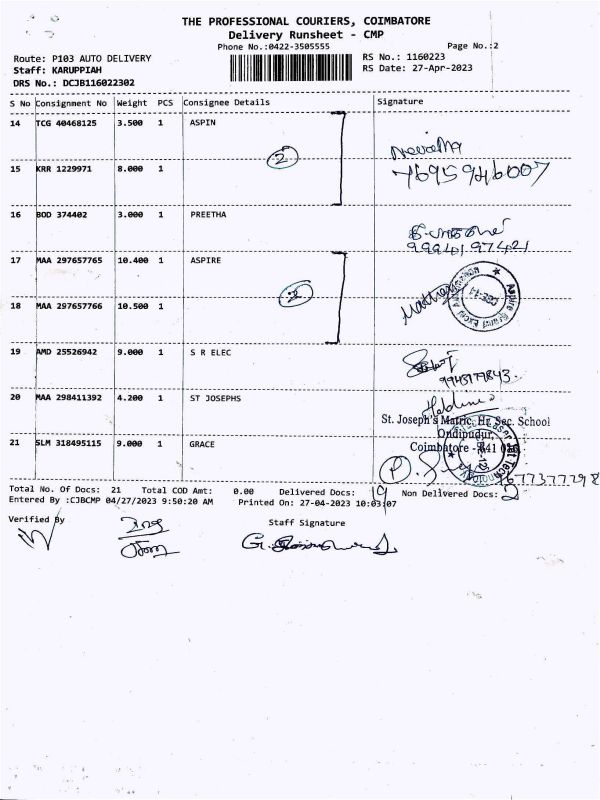 THE PROFESSIONAL COURIERS, COIMBATORE
Delivery Runsheet - CMP
Phone No.:0422-3505555 Page No.:2
Route: P103 AUTO DELIVERY RS No.: 1160223
Staff: KARUPPIAH RS Date: 27-Apr-2023
DRS No.: DCJB116022302
S No Consignment No Weight PCS Consignee Details Signature
14 TCG 40468125 3.500 1 ASPIN
2
7695946007
15 KRR 1229971 8.000 1
16 BOD 374402 3.000 1 PREETHA
9994197421
17 MAA 297657765 10.400 1 ASPIRE
2
18 MAA 297657766 10.500 1
19 AMD 25526942 9.000 1 S R ELEC
9943179843
20 MAA 298411392 4.200 1 ST JOSEPHS
St. Joseph's Matric. Hr. Sec. School
Ondipudur,
Coimbatore - 641 0
21 SLM 318495115 9.000 1 GRACE
9677377298
Total No. Of Docs: 21 Total COD Amt: 0.00 Delivered Docs: 19 Non Delivered Docs: 2
Entered By :CJBCMP 04/27/2023 9:50:20 AM Printed On: 27-04-2023 10:03:07
Verified By Staff Signature